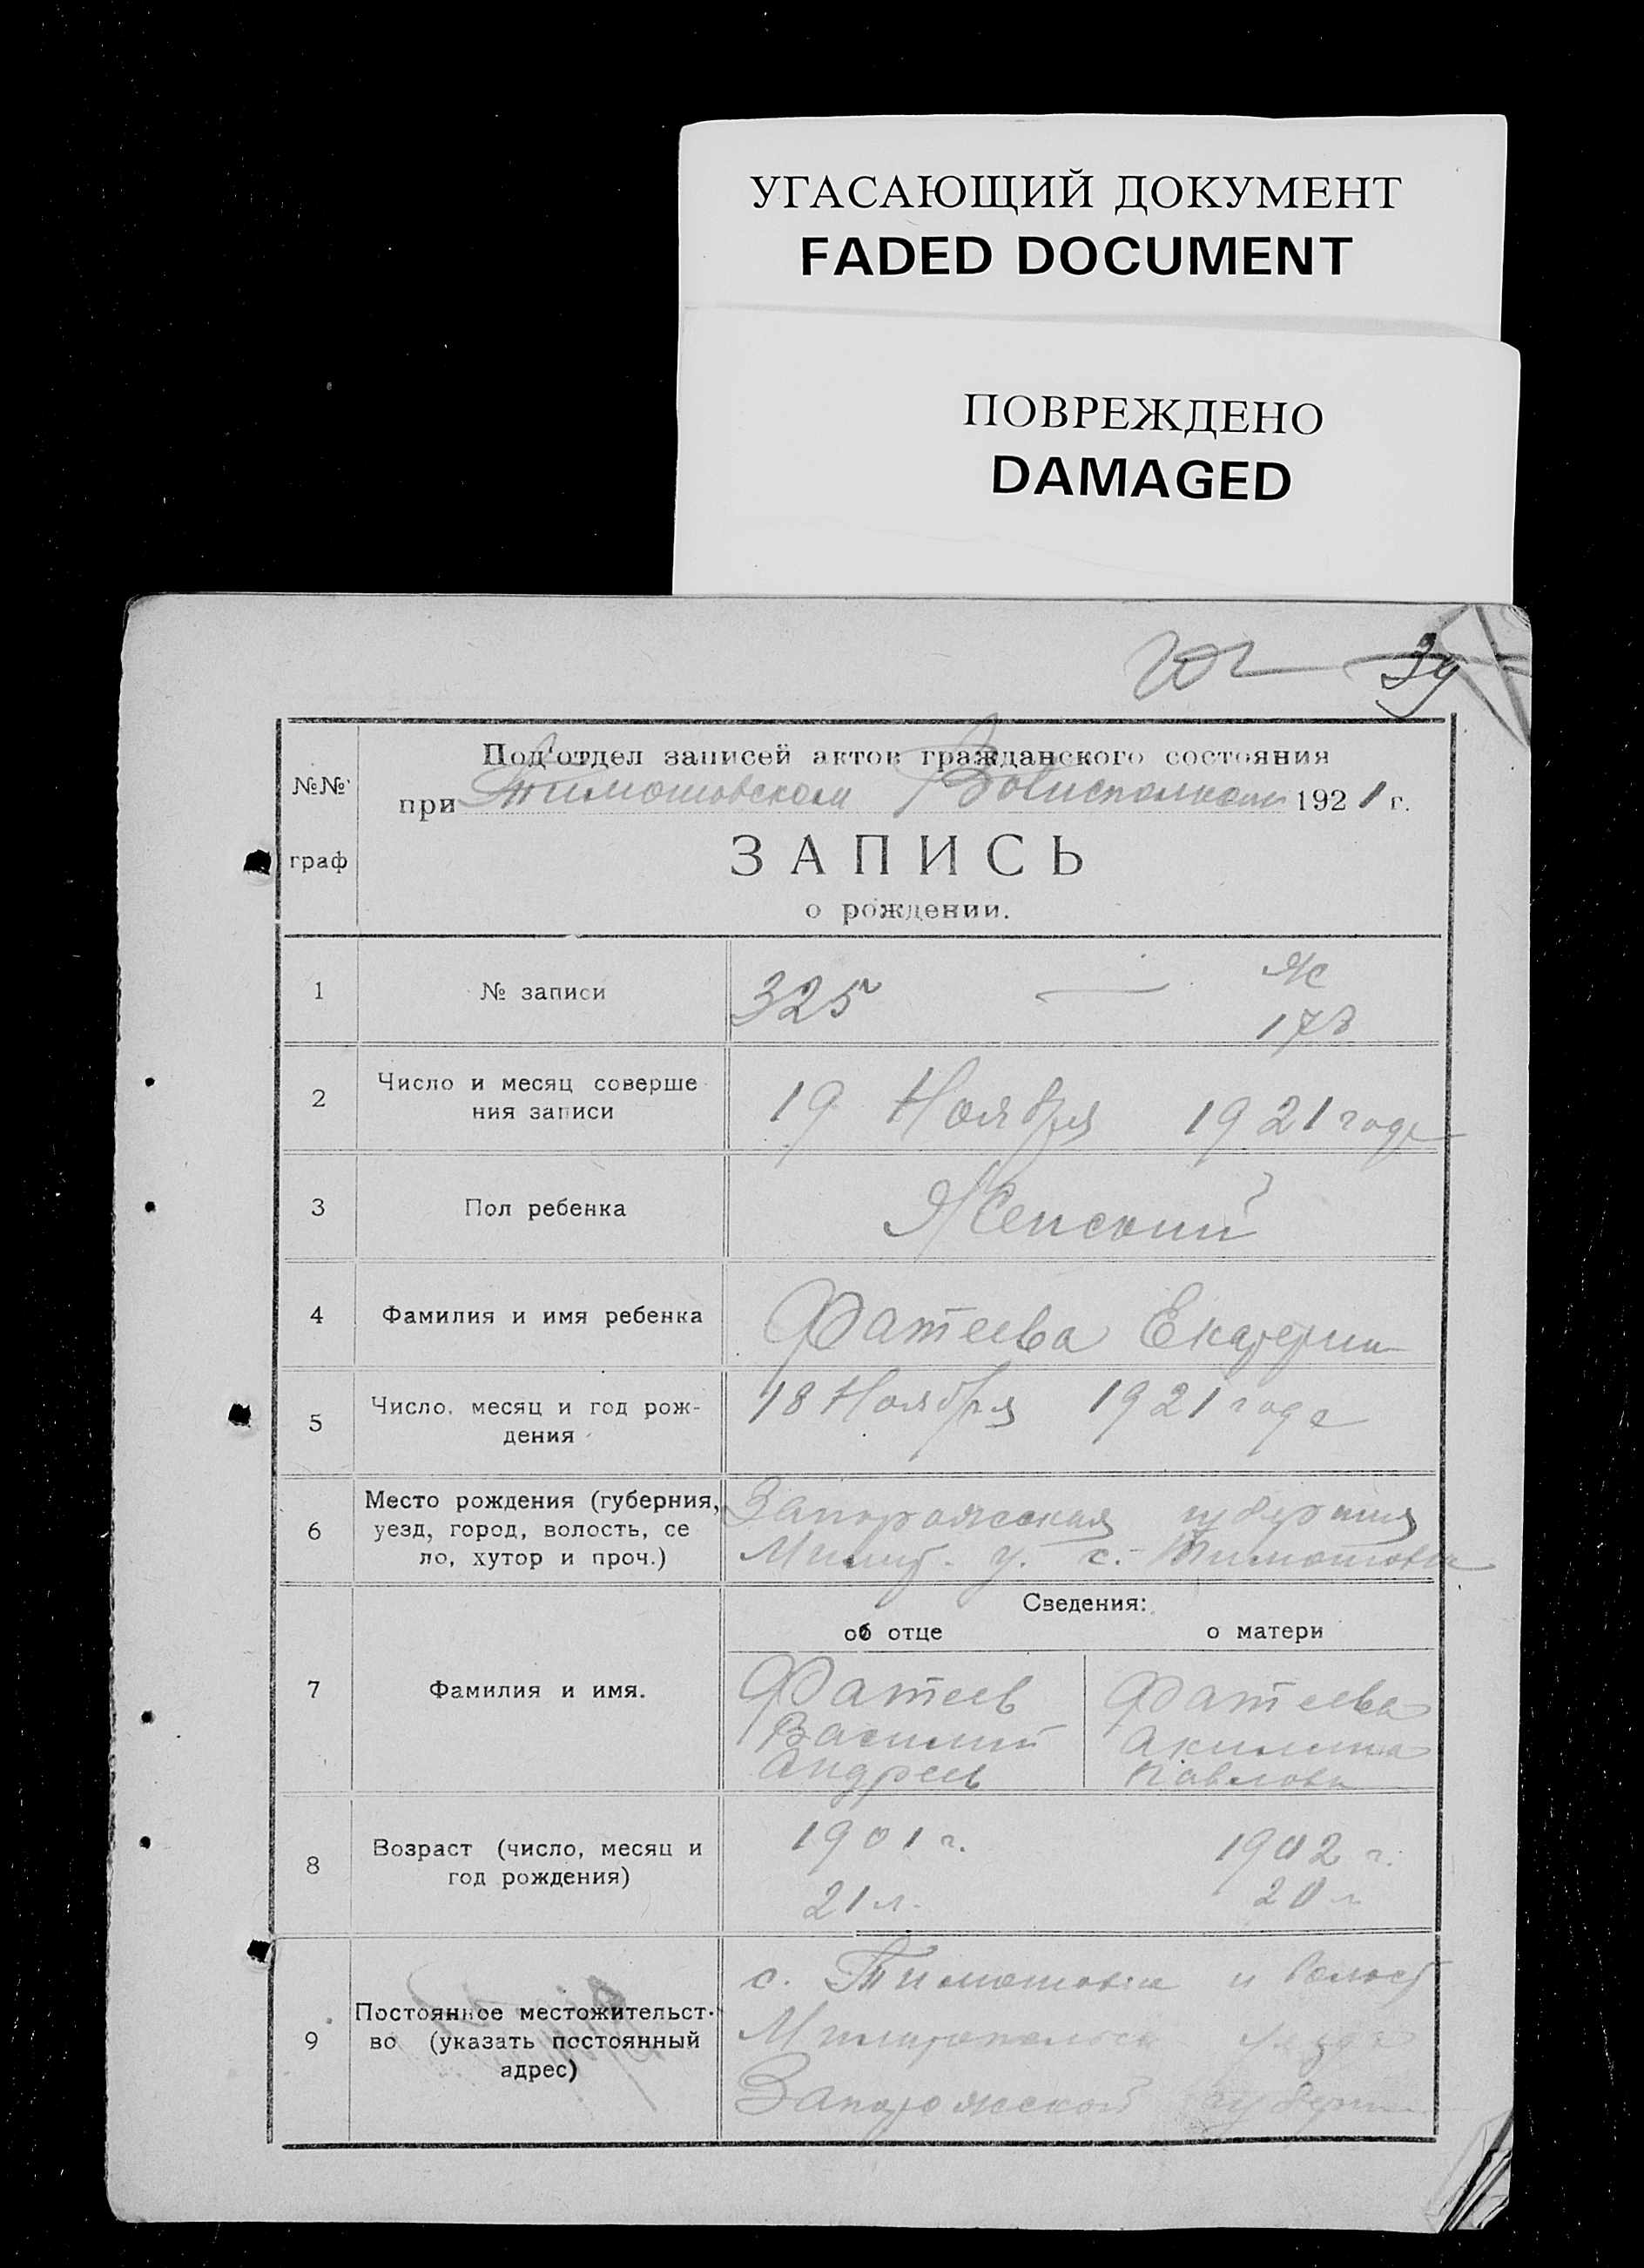 УГАСАЮЩИЙ ДОКУМЕНТ
FADED DOCUMENT
ПОВРЕЖДЕНО
DAMAGED
39
№№ граф
Под'отдел записей актов гражданского состояния
при Тимошовском Волисполкоме 1921 г.
ЗАПИСЬ
о рождении.
1 № записи 325 Ж
178
2 Число и месяц соверше
ния записи 19 Ноября 1921 года
3 Пол ребенка Женский
4 Фамилия и имя ребенка Фатеева Екатерин
5 Число, месяц и год рож-
дения 18 Ноября 1921 года
6 Место рождения (губерния,
уезд, город, волость, се
ло, хутор и проч.) Запорожская губерния
Мелит. у. с. Тимошовка
Сведения:
об отце о матери
7 Фамилия и имя. Фатеев Фатеева
Василий Акилина
Андреев Павлова
8 Возраст (число, месяц и
год рождения) 1901 г. 1902 г.
21 л. 20 л
9 Постоянное местожительст-
во (указать постоянный
адрес) с. Тимошовка и волост
Мелитопольск уезда
Запорожской губерн